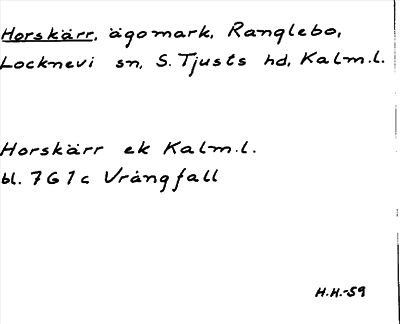 Horskärr, ägomark, Ranglebo,
Locknevi sn, S. Tjusts hd, Kalm.l.
Horskärr ek Kalm.l.
bl. 7G1c Vrångfall
H.H.-59